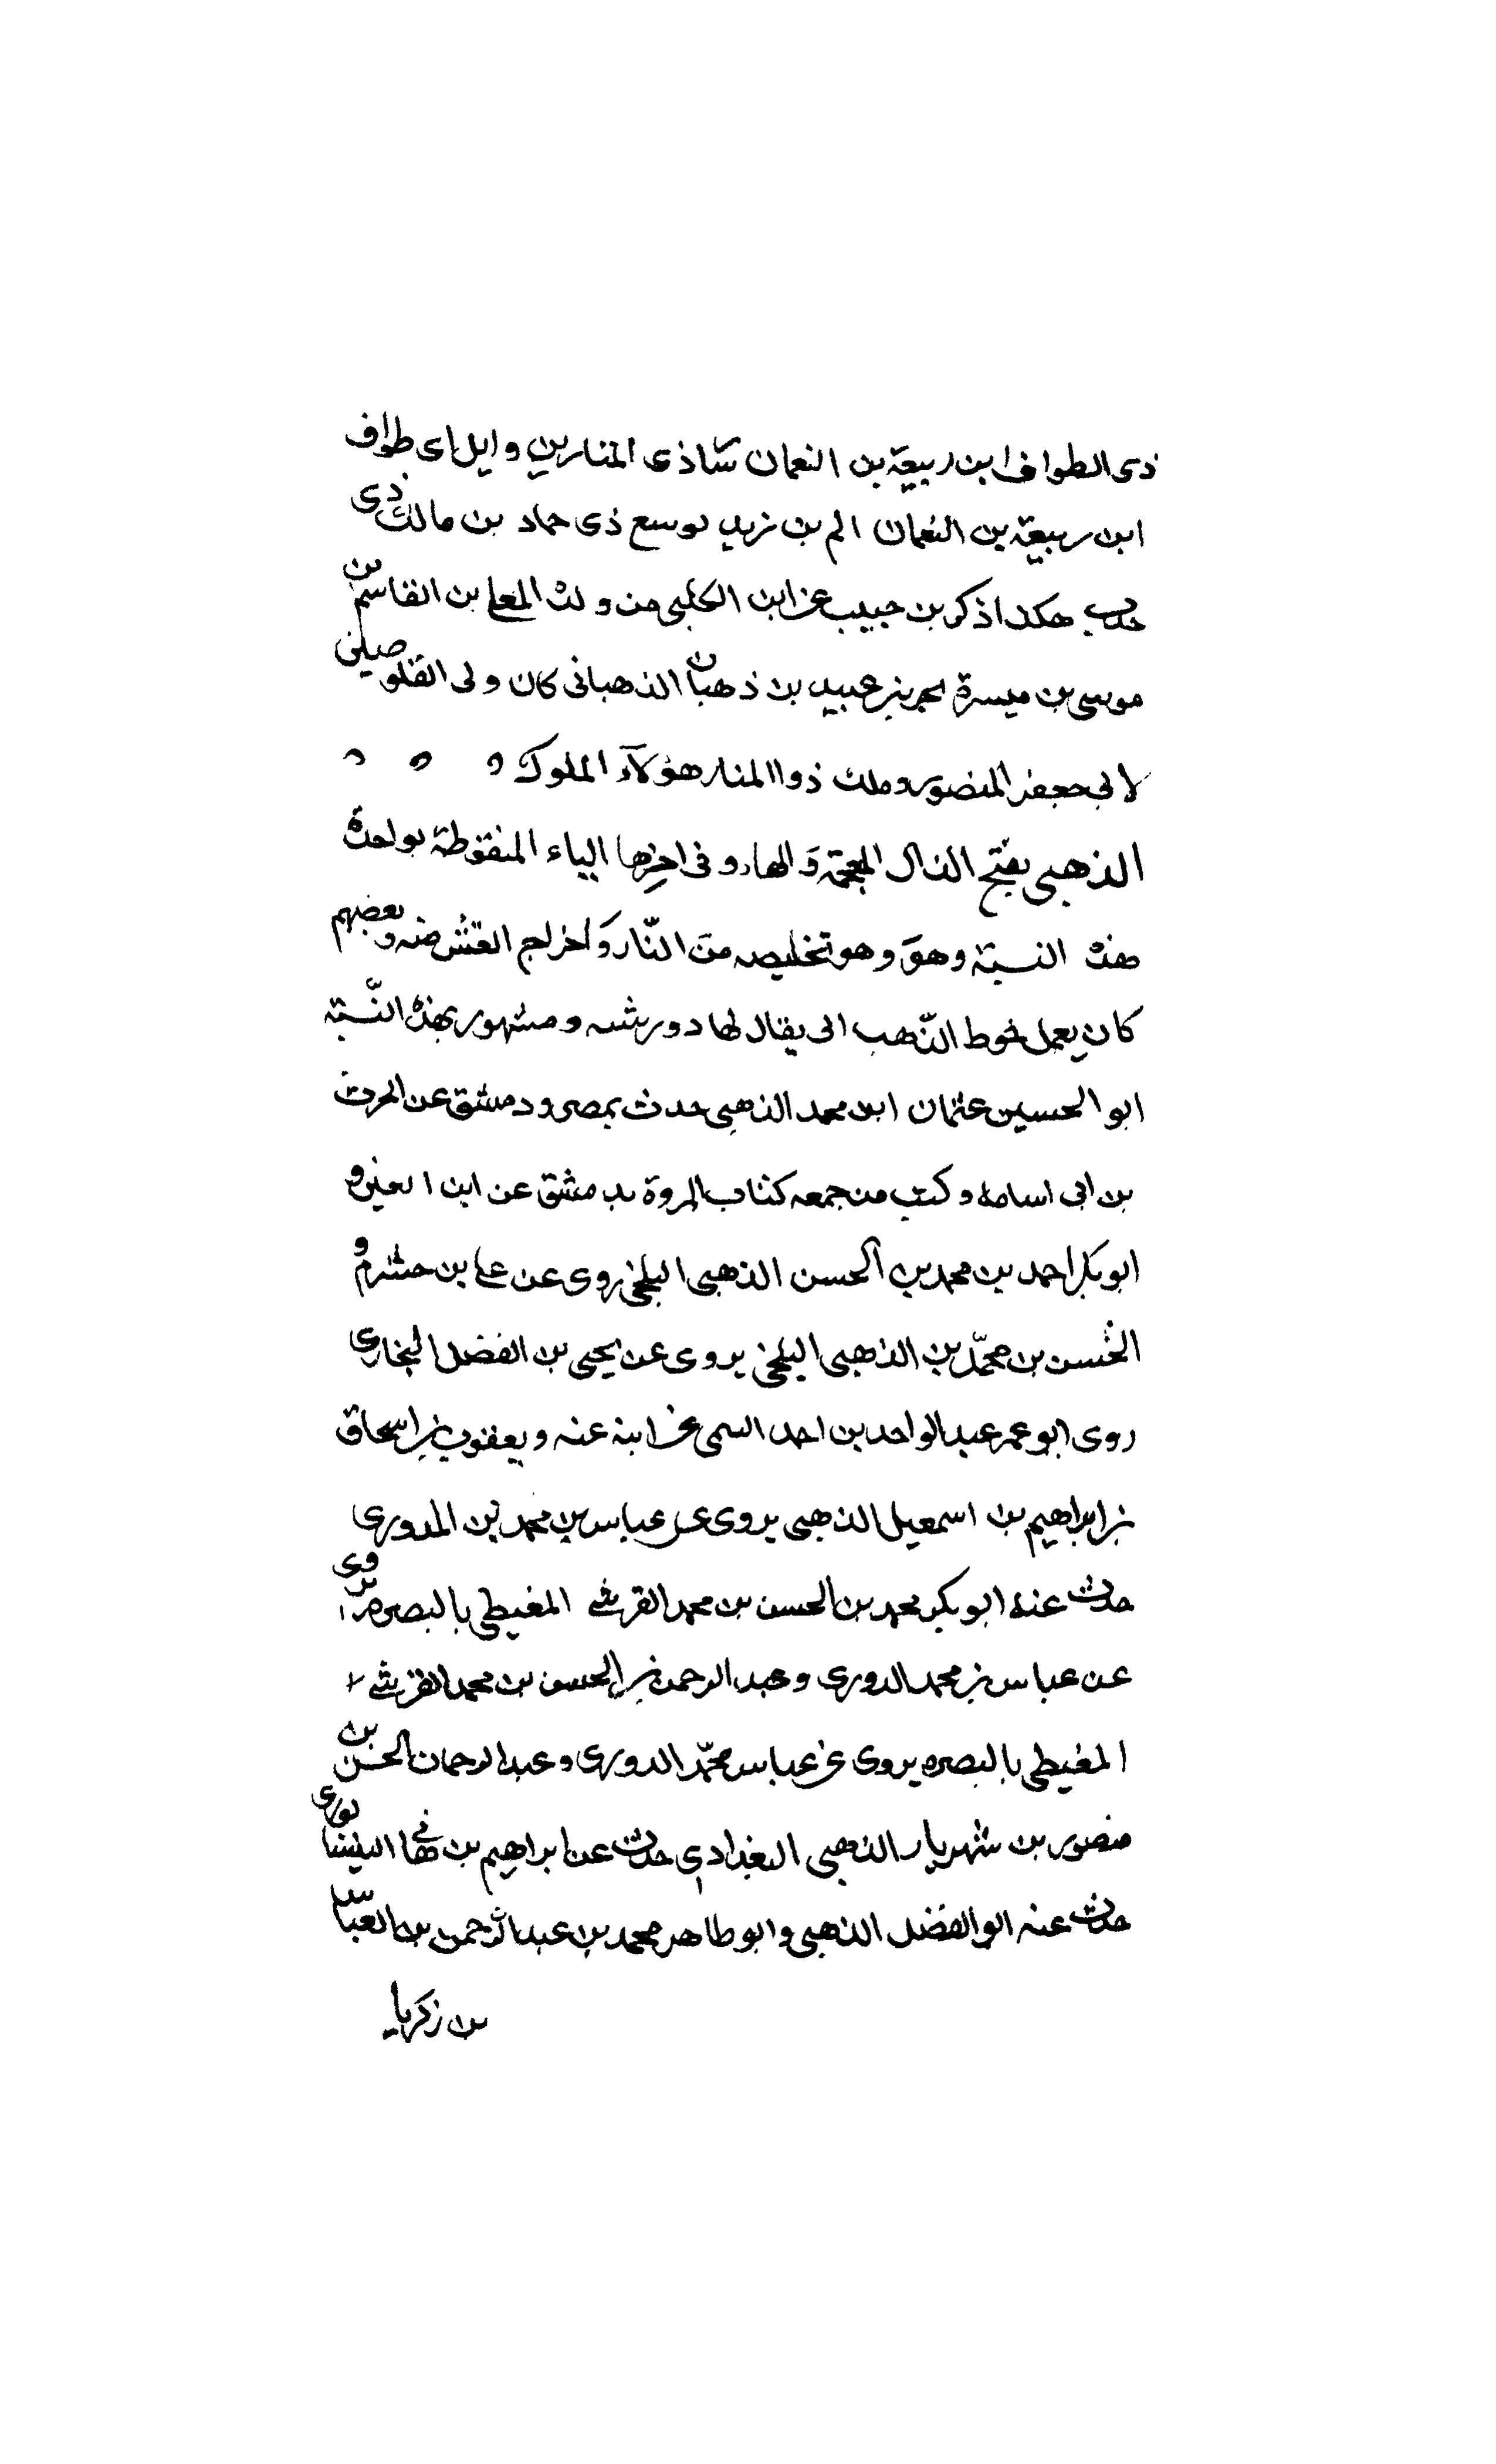 ذى الطواف ابن ربيعة بن النعمان شاذى المنار بن وايل اى طواف
ابن ربيعة بن النعمان الم بن زيد نوسع ذى حماد بن مالك ذى
حدب هكذا ذكر بن حبيب عن ابن الكلبى من ولده المعلى بن القاسم بن
موسى بن ميسرة بن عبيد بن ذهبان الذهبانى كان ولى القلوصيلى
لابى جعفر المنصور وملك ذوا المنار هؤلآء الملوك
الذهبى بفتح الذال المعجمة والهاء وفى اخرها الياء المنقوطة بواحدة
هذه النسبة وهو وهو تخليصه من النّار واخراج الغش منه وبعضهم
كان يعمل خوط الذّهب الى يقال لها دورشه ومشهور بهذه النّسبة
ابو الحسين عثمان ابن محمد الذهبى حدث بمصر ودمشق عن الحرث
بن ابى اسامه وكتب من جمعه كتاب المروة بدمشق عن ابن و
ابو بكر احمد بن محمد بن الحسن الذهبى البلخى روى عن على بن حشرم و
الحسن بن محمّد بن الذهبى البلخى يروى عن يحيى بن الفضل البخارى
روى ابو عمر عبد الواحد بن احمد السمى عن ابنه عنه ويعقوب بن اسحاق
بن ابراهيم بن اسمعيل الذهبى يروى عن عباس بن محمد بن الدورى
حدث عنه ابو بكر محمد بن الحسن بن محمد القرشى المغيطى بالبصره يروى
عن عباس بن محمد الدورى وعبد الرحمن بن الحسن بن محمد القرشى
المغيطى بالبصره يروى عن عباس محمّد الدورى وعبد الرحمان الحسن بن
منصور بن شهريار الذهبى البغدادى حدث عن ابراهيم بن هانى النيشابورى
حدث عنه ابو الفضل الذهبى وابو طاهر محمد بن عبد الرّحمن بن العبّاس
بن زكريا